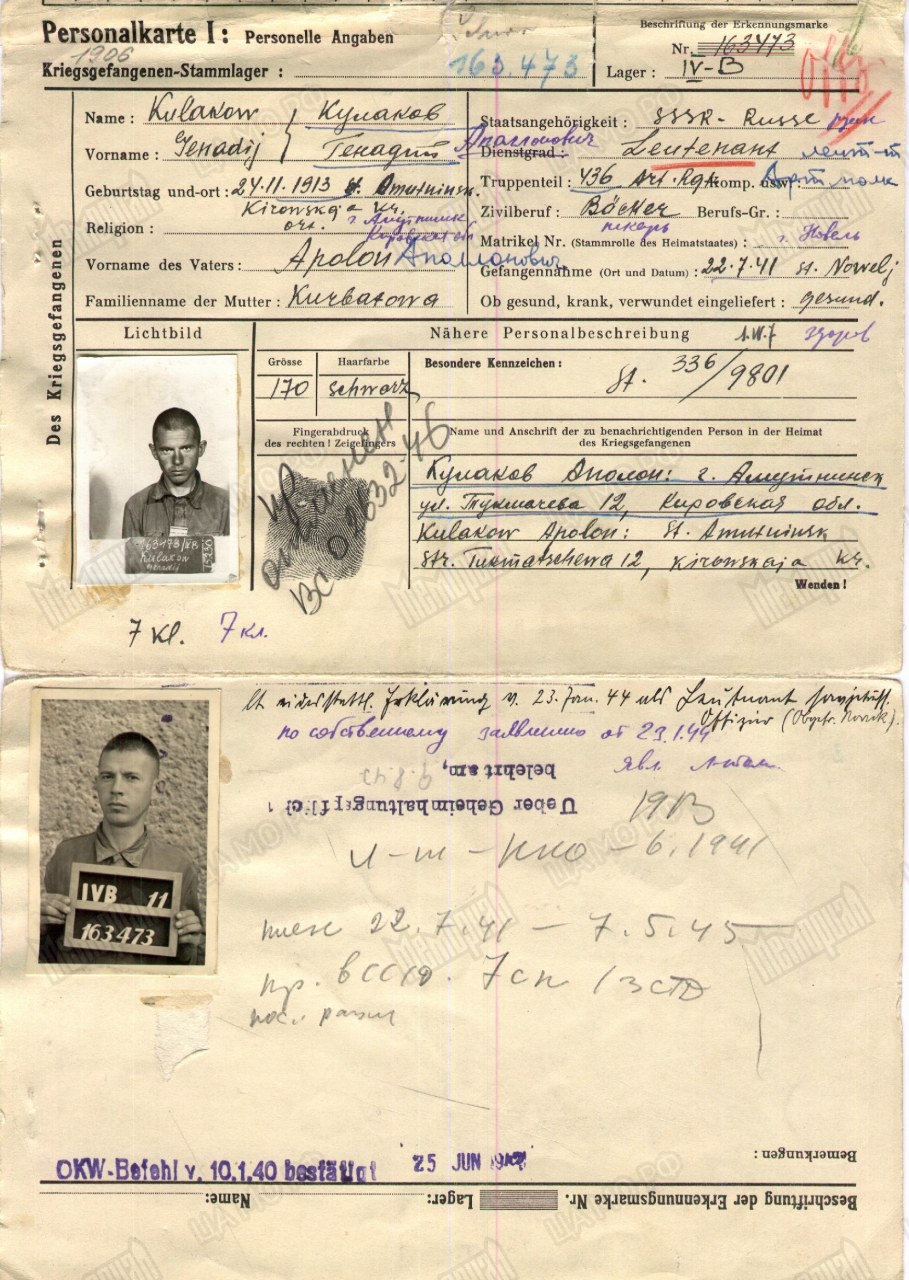 Personalkarte I: Personelle Angaben
1906
Kriegsgefangenen-Stammlager :
163.473
Beschriftung der Erkennungsmarke
Nr. 163473
Lager : IV-B
Offz
Des Kriegsgefangenen
Name : Kulakow Кулаков
Vorname : Genadij Генадий Аполлонович
Geburtstag und -ort : 24.11.1913 st. Omutninsk.
Kirowskaja Kr.
Religion : ort.
Vorname des Vaters : Apolon Аполлонович
Familienname der Mutter : Kurbatowa
Staatsangehörigkeit : SSSR - Russe
Dienstgrad : Leutenant лейт-т
Truppenteil : 436 Art. Rgt Komp. usw. : Арт полк
Zivilberuf : Bäcker Berufs-Gr. :
пекарь
Matrikel Nr. (Stammrolle des Heimatstaates) : г. Невель
Gefangennahme (Ort und Datum) : 22.7.41 st. Nowelj
Ob gesund, krank, verwundet eingeliefert : gesund.
здоров
Lichtbild
Nähere Personalbeschreibung
Grösse
170
Haarfarbe
schwarz
Besondere Kennzeichen :
St. 336/9801
Fingerabdruck
des rechten ! Zeigefingers
Name und Anschrift der zu benachrichtigenden Person in der Heimat
des Kriegsgefangenen
Кулаков Аполон: г. Амутнинск
ул. Тукмачева 12, Кировская обл.
Kulakow Apolon: St. Amutninsk
Str. Tukmatschewa 12, Kirowskaja Kr.
Wenden !
Kulakow
Genadij
7 Kl. 7 кл.
lt eidesstattl. Erklärung v. 23. Jan. 44 als Leutnant sowjetruss.
Offizier
по собственному заявлению от 23.1.44
явл.
belehrt am,
Ueber Geheimhaltungspflicht
IVB 11
163473
19В
6.1941
22.7.41 — 7.5.45
OKW-Befehl v. 10.1.40 bestätigt
25 JUN
Bemerkungen :
Beschriftung der Erkennungsmarke Nr. Lager: Name:
Мемориал
ЦАМО РФ